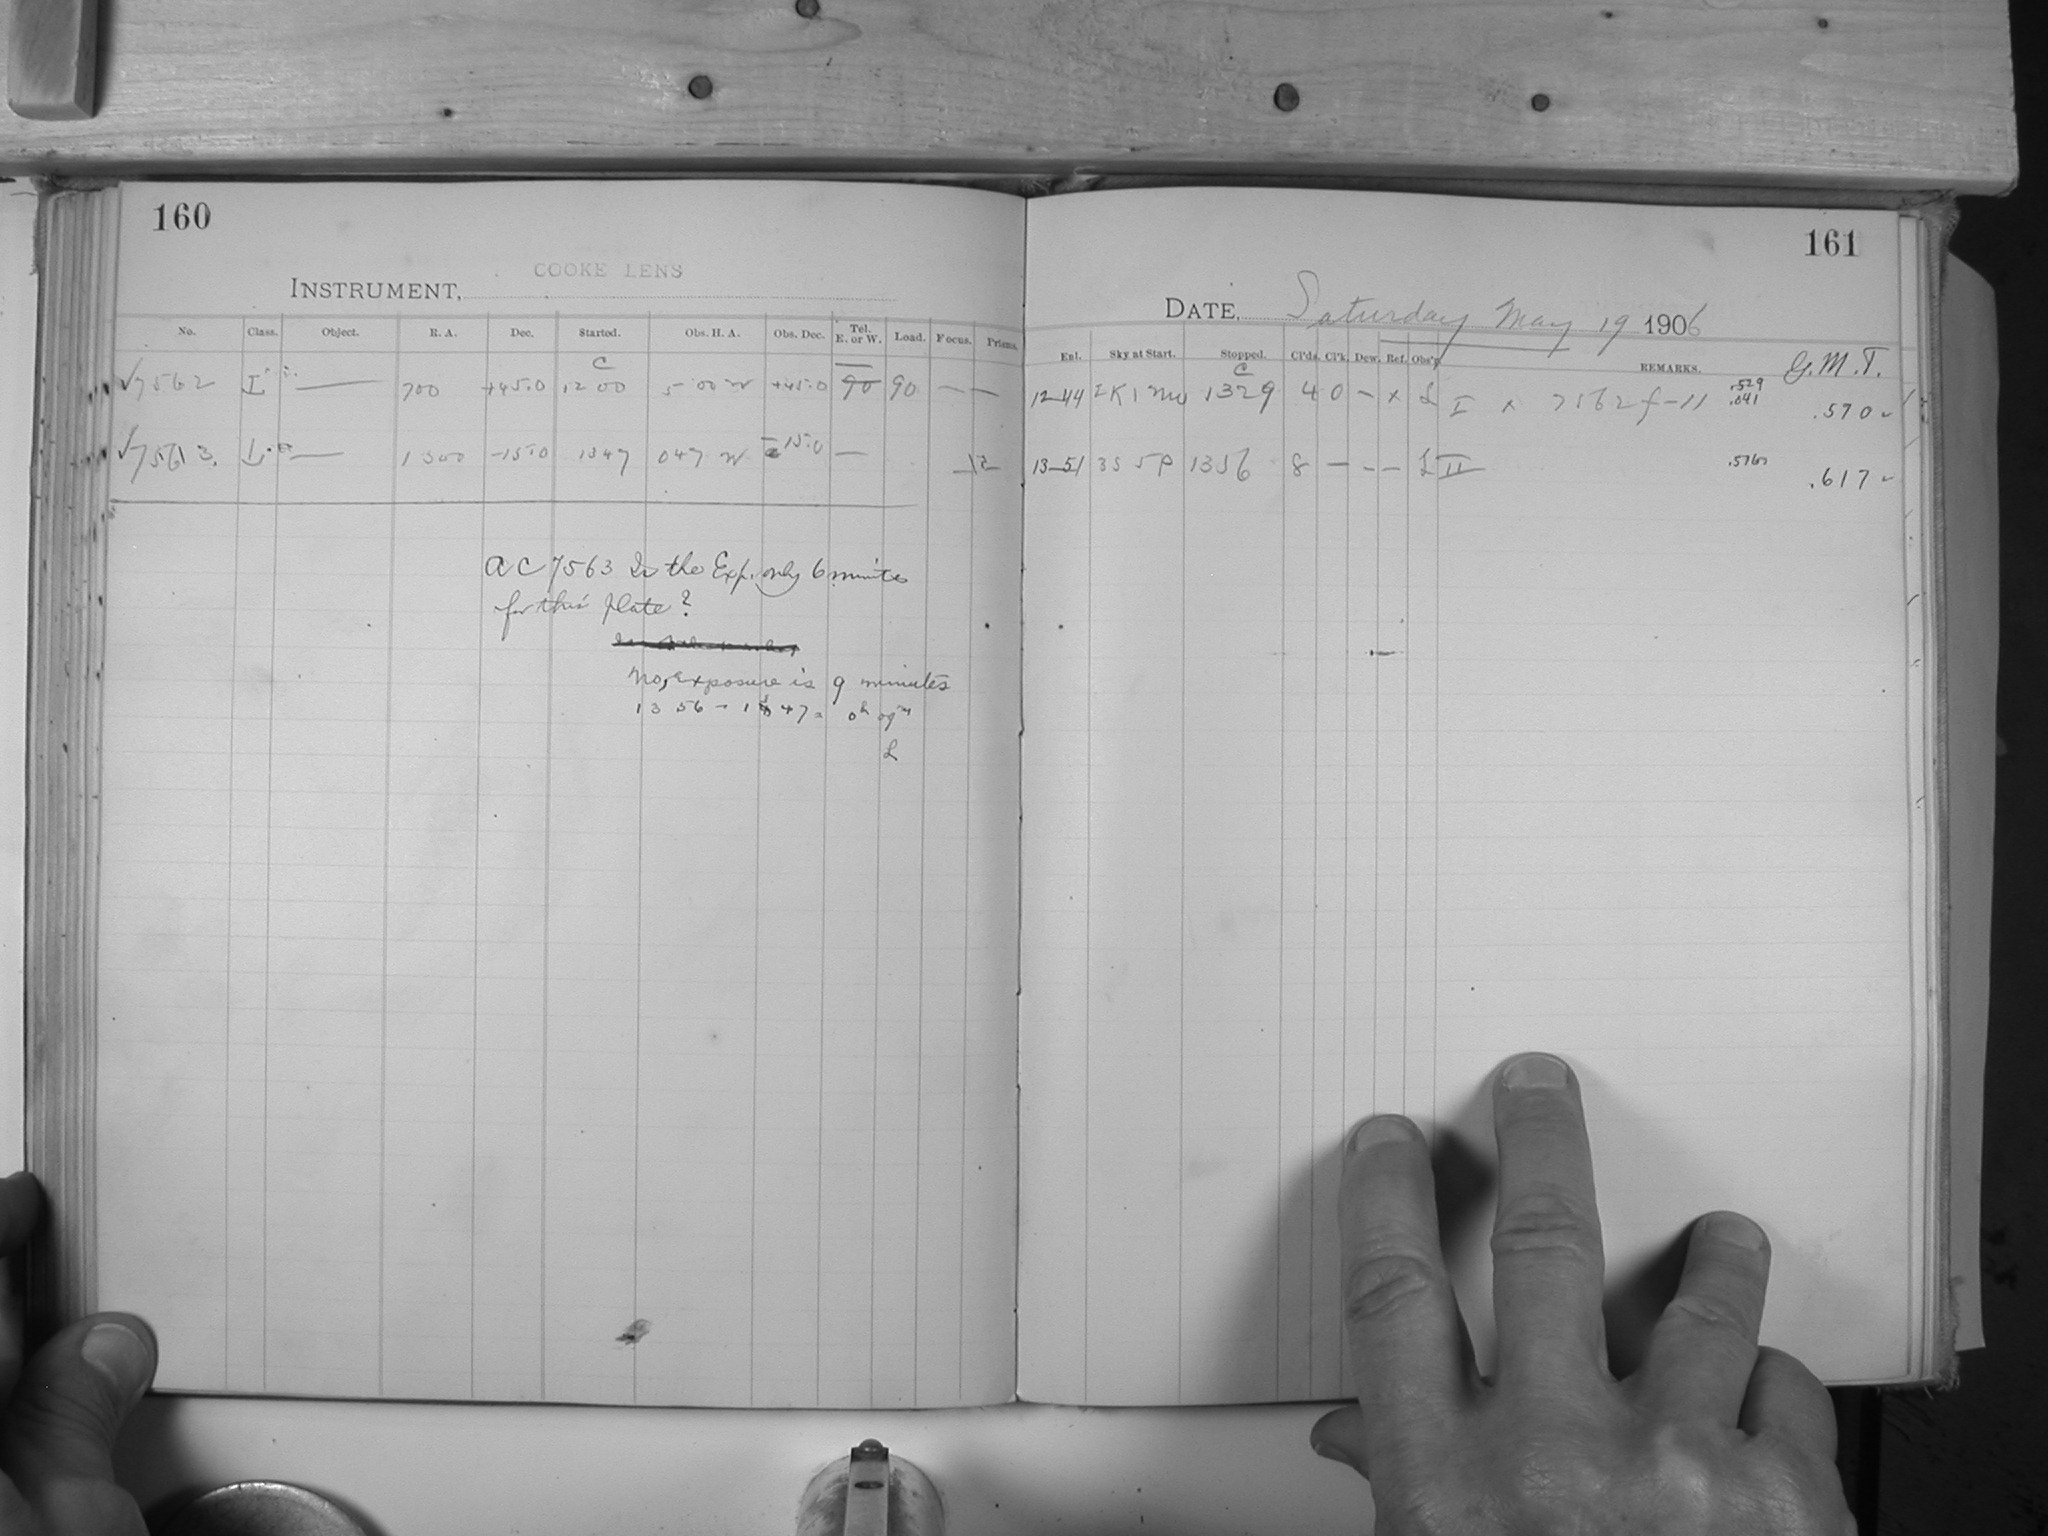 160
COOKE LENS
INSTRUMENT,
No. Class. Object. R. A. Dec. Started. Obs. H. A. Obs. Dec. Tel. E. or W. Load. Focus. Prisms.
C
√7562 I — 700 +45.0 1200 5 00 W +45.0 90 90 — —
√7563. — 1300 -15.0 1347 047 W -15.0 —
AC 7563 Is the Exp. only 6 minutes
for this plate?
No, Exposure is 9 minutes
13 56 - 13 47 = 0h 09m
L
161
DATE, Saturday May 19 1906
Exl. Sky at Start. Stopped. Cl'ds. Cl'k. Dew. Ref. Obs'r. REMARKS. G.M.T.
C
12-44 1329 4 0 — x L I x 7562 f-11 .529 .041 .570
13-51 3S 5P 1356 8 — — — L II .576 .617